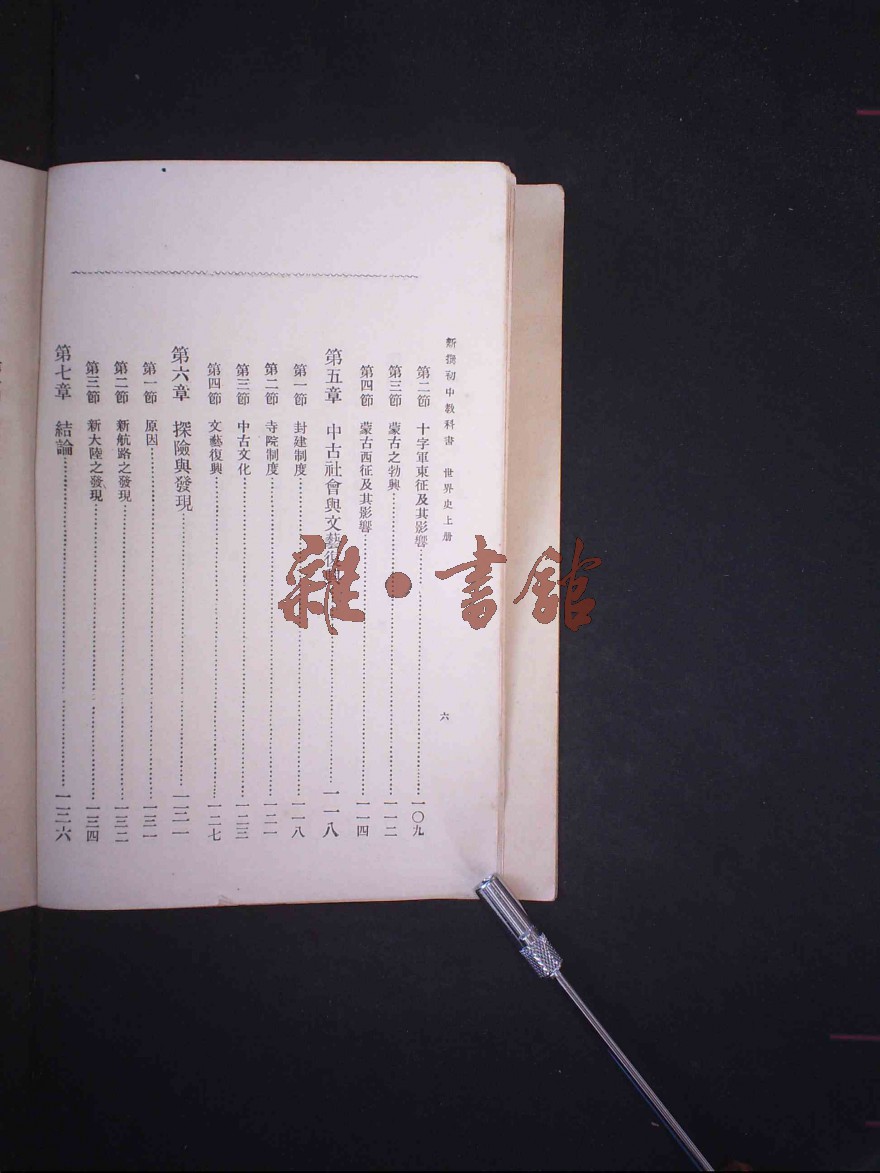 新撰初中教科書 世界史上册
六
第二節 十字軍東征及其影響 一〇九
第三節 蒙古之勃興 一一二
第四節 蒙古西征及其影響 一一四
第五章 中古社會與文藝復興 一一八
第一節 封建制度 一一八
第二節 寺院制度 一二一
第三節 中古文化 一二三
第四節 文藝復興 一二七
第六章 探險與發現 一三一
第一節 原因 一三一
第二節 新航路之發現 一三二
第三節 新大陸之發現 一三四
第七章 結論 一三六
雜·書館